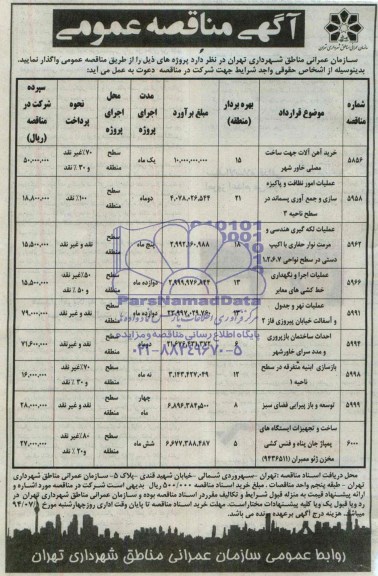 آگهی مناقصه عمومی
سازمان عمرانی مناطق شهرداری تهران در نظر دارد پروژه های ذیل را از طریق مناقصه عمومی واگذار نمایید.
بدینوسیله از اشخاص حقوقی واجد شرایط جهت شرکت در مناقصه دعوت به عمل می آید:
شماره مناقصه | موضوع قرارداد | بهره بردار (منطقه) | مبلغ برآورد | مدت اجرای پروژه | محل اجرای پروژه | نحوه پرداخت | سپرده شرکت در مناقصه (ریال)
۵۸۵۶ | خرید آهن آلات جهت ساخت مصلی خاور شهر | ۱۵ | ۱۰,۰۰۰,۰۰۰,۰۰۰ | یک ماه | سطح منطقه | ۷۰٪غیر نقد و ۳۰٪ نقد | ۵۰,۰۰۰,۰۰۰
۵۹۵۸ | عملیات امور نظافت و پاکیزه سازی و جمع آوری پسماند در سطح ناحیه ۳ | ۲۱ | ۴,۰۷۸,۰۲۶,۵۴۴ | دوماه | سطح منطقه | ۱۰۰٪ نقد | ۱۸,۸۰۰,۰۰۰
۵۹۶۲ | عملیات لکه گیری هندسی و مرمت نوار حفاری با اکیپ دستی در سطح نواحی ۱،۲،۶،۷ | ۱۸ | ۲,۹۹۲,۳۶۰,۹۸۸ | پنج ماه | سطح منطقه | نقد و غیر نقد | ۱۵,۵۰۰,۰۰۰
۵۹۶۶ | عملیات اجرا و نگهداری خط کشی های معابر | ۱۳ | ۲,۹۹۹,۹۷۶,۸۴۲ | دوازده ماه | سطح منطقه | ۵۰٪غیر نقد و ۵۰٪ نقد | ۱۵,۵۰۰,۰۰۰
۵۹۹۱ | عملیات نهر و جدول و آسفالت خیابان پیروزی فاز ۲ | ۱۳ | دوازده ماه | سطح منطقه | نقد و غیر نقد | ۷۹,۰۰۰,۰۰۰
۵۹۹۴ | احداث ساختمان بازپروری و مدد سرای خاورشهر | دوماه | سطح منطقه | نقد و غیر نقد | ۷۱,۶۰۰,۰۰۰
۵۹۹۸ | بازسازی ابنیه متفرقه در سطح ناحیه ۱ | ۱۲ | ۳,۱۴۳,۴۲۷,۰۴۹ | نه ماه | سطح منطقه | ۷۰٪غیر نقد و ۳۰٪ نقد | ۱۶,۰۰۰,۰۰۰
۵۹۹۹ | توسعه و باز پیرایی فضای سبز | ۸ | ۶,۸۹۶,۳۸۴,۵۰۰ | چهار ماه | سطح منطقه | نقد و غیر نقد | ۲۸,۰۰۰,۰۰۰
۶۰۰۰ | ساخت و تجهیزات ایستگاه های پمپاژ جان پناه و فنس کشی مخزن ژئو ممبران (۹۴۳۶۵۱۱) | ۵ | ۶,۶۷۷,۳۸۸,۴۸۷ | شش ماه | سطح منطقه | ۸۰٪غیر نقد و ۲۰٪ نقد | ۲۷,۰۰۰,۰۰۰
ParsNamadData
پایگاه اطلاع رسانی مناقصه و مزایده
۰۲۱-۸۸۳۴۹۶۷۰-۵
محل دریافت اسناد مناقصه :تهران -سهروردی شمالی -خیابان شهید قندی -پلاک ۵- سازمان عمرانی مناطق شهرداری
تهران - طبقه پنجم واحد مناقصات . مبلغ خرید اسناد مناقصه ۵۰۰/۰۰۰ ریال بدیهی است شرکت در مناقصه مورد اشاره و
ارائه پیشنهاد قیمت به منزله قبول شرایط و تکالیف مقرر در اسناد مناقصه بوده و سازمان عمرانی مناطق شهرداری تهران در
رد یا قبول یک ویا کلیه پیشنهادات مختار است. مهلت خرید اسناد مناقصه تا پایان وقت اداری روز چهارشنبه مورخ ۹۴/۰۷/۸
میباشد. هزینه درج آگهی برعهده برنده می باشد.
روابط عمومی سازمان عمرانی مناطق شهرداری تهران